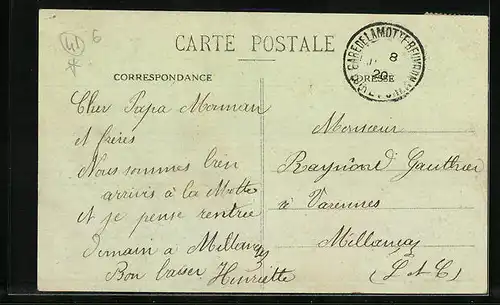 41
6
CARTE POSTALE
CORRESPONDANCE
ADRESSE
GARE DE LAMOTTE-BEUVRON
8
20
Cher Papa Maman
et frères
Nous sommes bien
arrivés à la Motte
et je pense rentrée
demain a Millançay
Bon baiser Henriette
Monsieur
Raymond Gauthier
à Varennes
Millançay
(L et C)